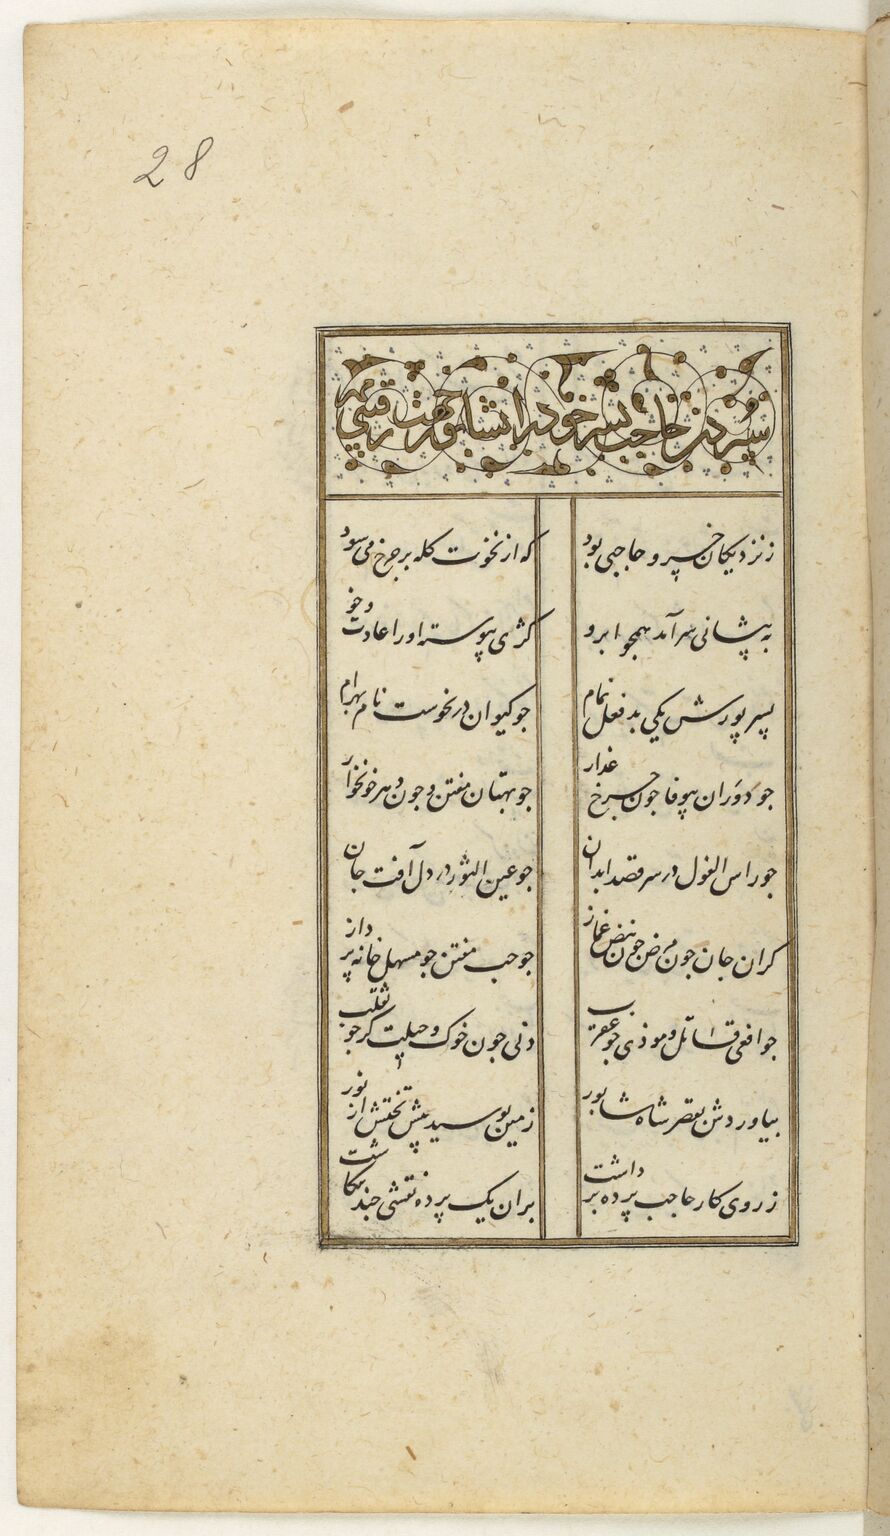 28
سپردن حاجب پسر خود را نشاپور جهت رفتن
ز نزدیکان خسرو حاجبی بود که از نخوت کله بر چرخ می سود
به پیشانی سرآمد همچو ابرو کژی پیوسته او را عادت و خو
پسر پورش یکی بدفعل نمام جو کیوان در نحوست نام بهرام
جو دوران بیوفا جون چرخ غدار جو بهتان مفتن و جون دهر خونخوار
جو راس الغول در سر قصد ابدان جو عین الثور در دل آفت جان
کران جان جون مرض جون نبض غماز جو حب مفتن جو مسهل خانه پرداز
جو افعی قاتل و موذی جو عقرب دنی جون خوک و حیلت کر جو ثعلب
بیاوردش بقصر شاه شابور زمین بوسید پیش تختش از نور
ز روی کار حاجب پرده برداشت بران یک پرده نقشی جند بنکاشت